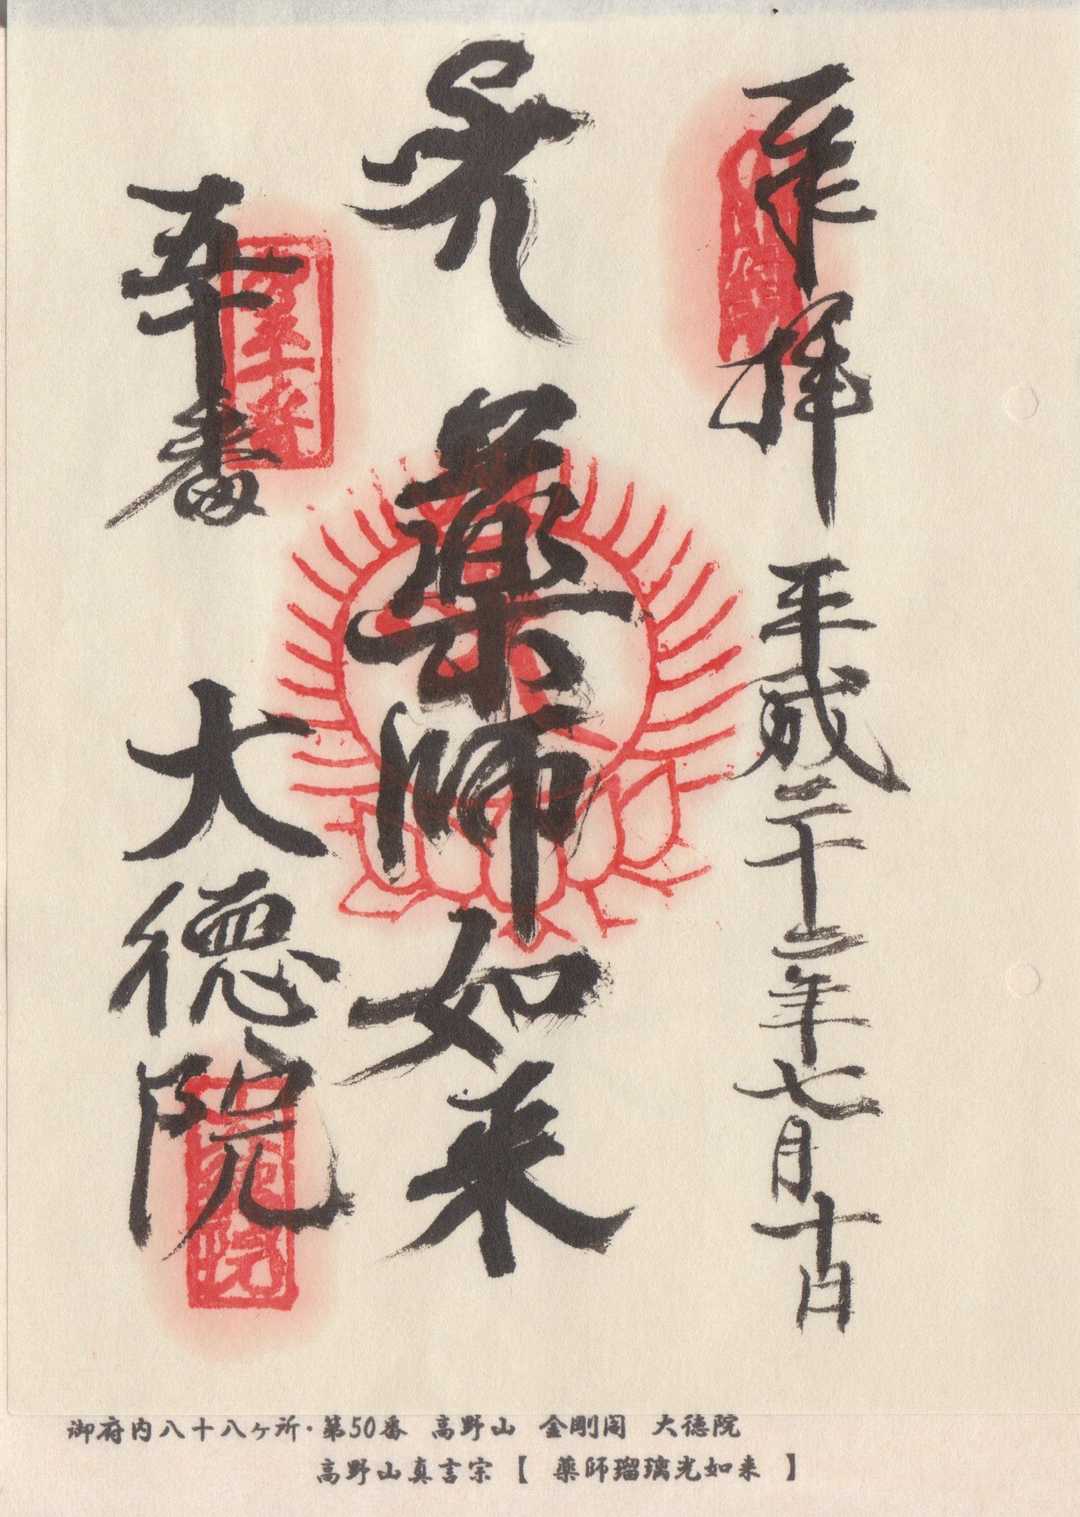 奉拝 平成二十二年七月十日
薬師如来
五十番
大徳院
御府内八十八ヶ所・第50番 高野山 金剛閣 大徳院
高野山真言宗【 薬師瑠璃光如来 】